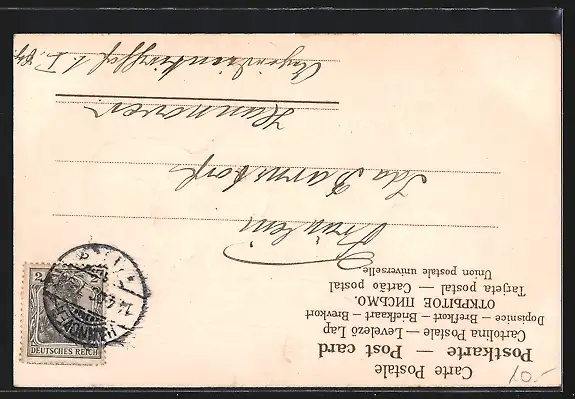 Carte Postale
Postkarte — Post card
Cartolina Postale — Levelező Lap
Dopisnice — Brefkort — Briefkaart — Brevkort
ОТКРЫТОЕ ПИСЬМО.
Tarjeta postal — Cartão postal
Union postale universelle
Fräulein
Ida Darmstorf
Hannover
2
DEUTSCHES REICH
HANNOVER
10.-